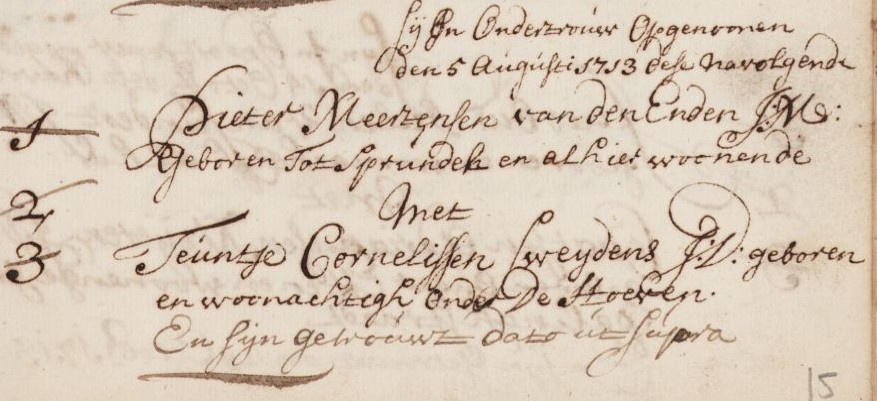 sijn In Ondertrouw Opgenoomen
den 5 Augusti 1713 dese Navolgende
1 Pieter Meertensen van den Enden J:M:
Geboren Tot Sprundel en alhier woonende
2 Met
3 Teuntje Cornelissen Sweydens J:D: geboren
en woonachtigh onder De Hoeven.
En sijn getrouwt dato ut supra
15